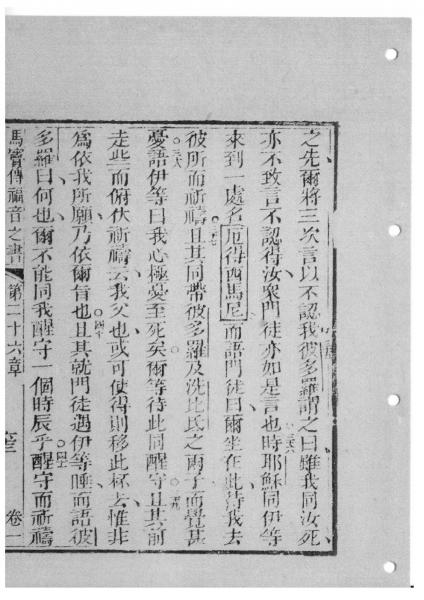 之先爾將三次言以不認我彼多羅謂之曰雖我同汝死
亦不致言不認得汝眾門徒亦如是言也時耶穌同伊等
來到一處名厄得西馬尼而語門徒曰爾坐在此待我去
彼所而祈禱且其同帶彼多羅及洗比氏之兩子而覺甚
憂語伊等曰我心極憂至死矣爾等待此同醒守且其前
走些而俯伏祈禱云我父也或可使得則移此杯去惟非
為依我所願乃依爾旨也且其就門徒遇伊等睡而語彼
多羅曰何也爾不能同我醒守一個時辰乎醒守而祈禱
馬竇傳福音之書 第二十六章 卷一